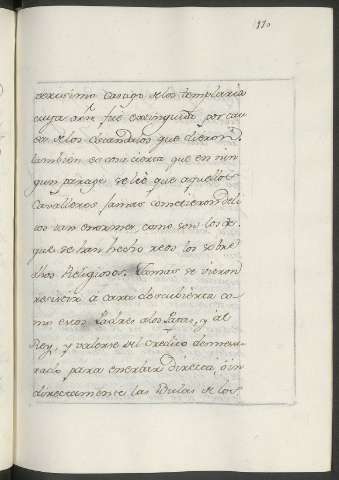 110
acerissimo castigo de los templarios
cuya orn. fue extinguida por cau
sa de los escandalos que dieron.
tambien es cosa cierta que en nin
gun parage se leè que aquellos
Cavalleros jamas cometieron deli
tos tan enormes, como son los de
que se han hecho reos los sobre
dhos Religiosos. Jamas se vieron
resistir a cara descubierta co
mo estos Padres a los Papas, y al
Rey, y valerse del credito demasi
rado para enervar directa, ò in
directamente las Bulas de los